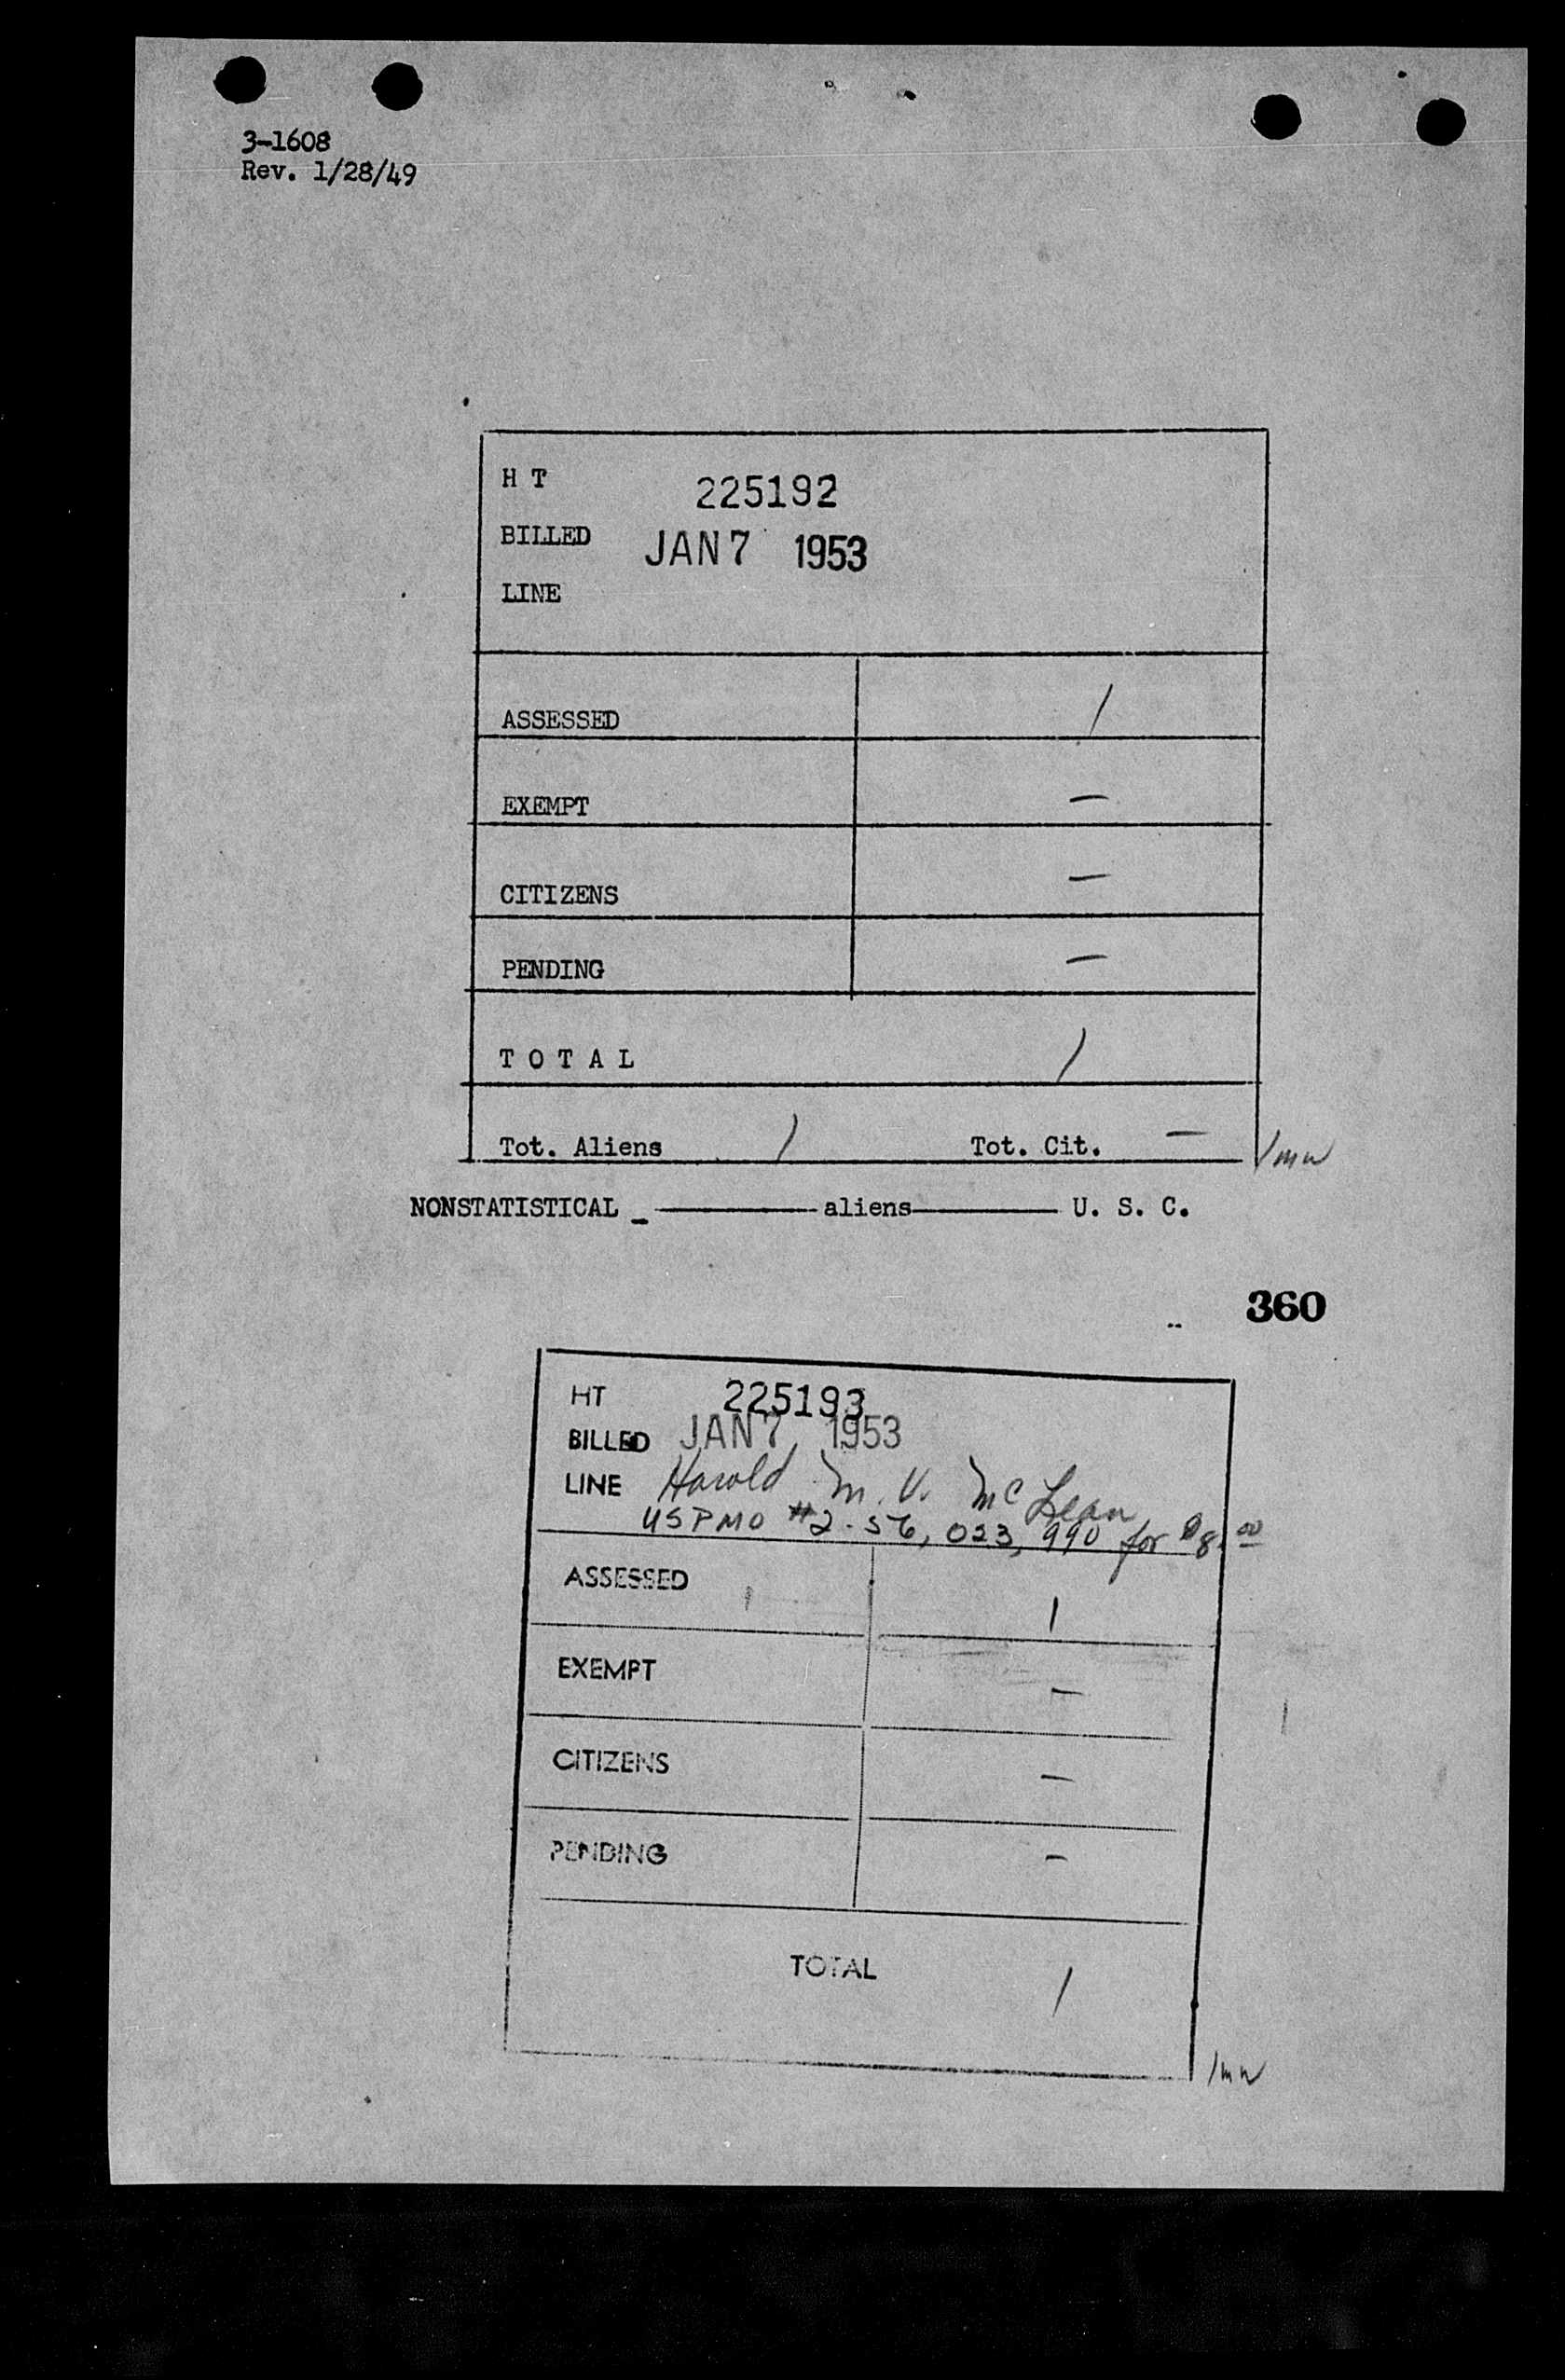 3-1608
Rev. 1/28/49
H T 225192
BILLED JAN 7 1953
LINE
ASSESSED 1
EXEMPT —
CITIZENS —
PENDING —
T O T A L 1
Tot. Aliens 1 Tot. Cit. — /mw
NONSTATISTICAL _ ———— aliens ———— U. S. C.
360
HT 225193
BILLED JAN 7 1953
LINE Harold M. V. McLean
USPMO #2-56,023,990 for $8.00
ASSESSED 1
EXEMPT —
CITIZENS —
PENDING —
TOTAL 1
/mw